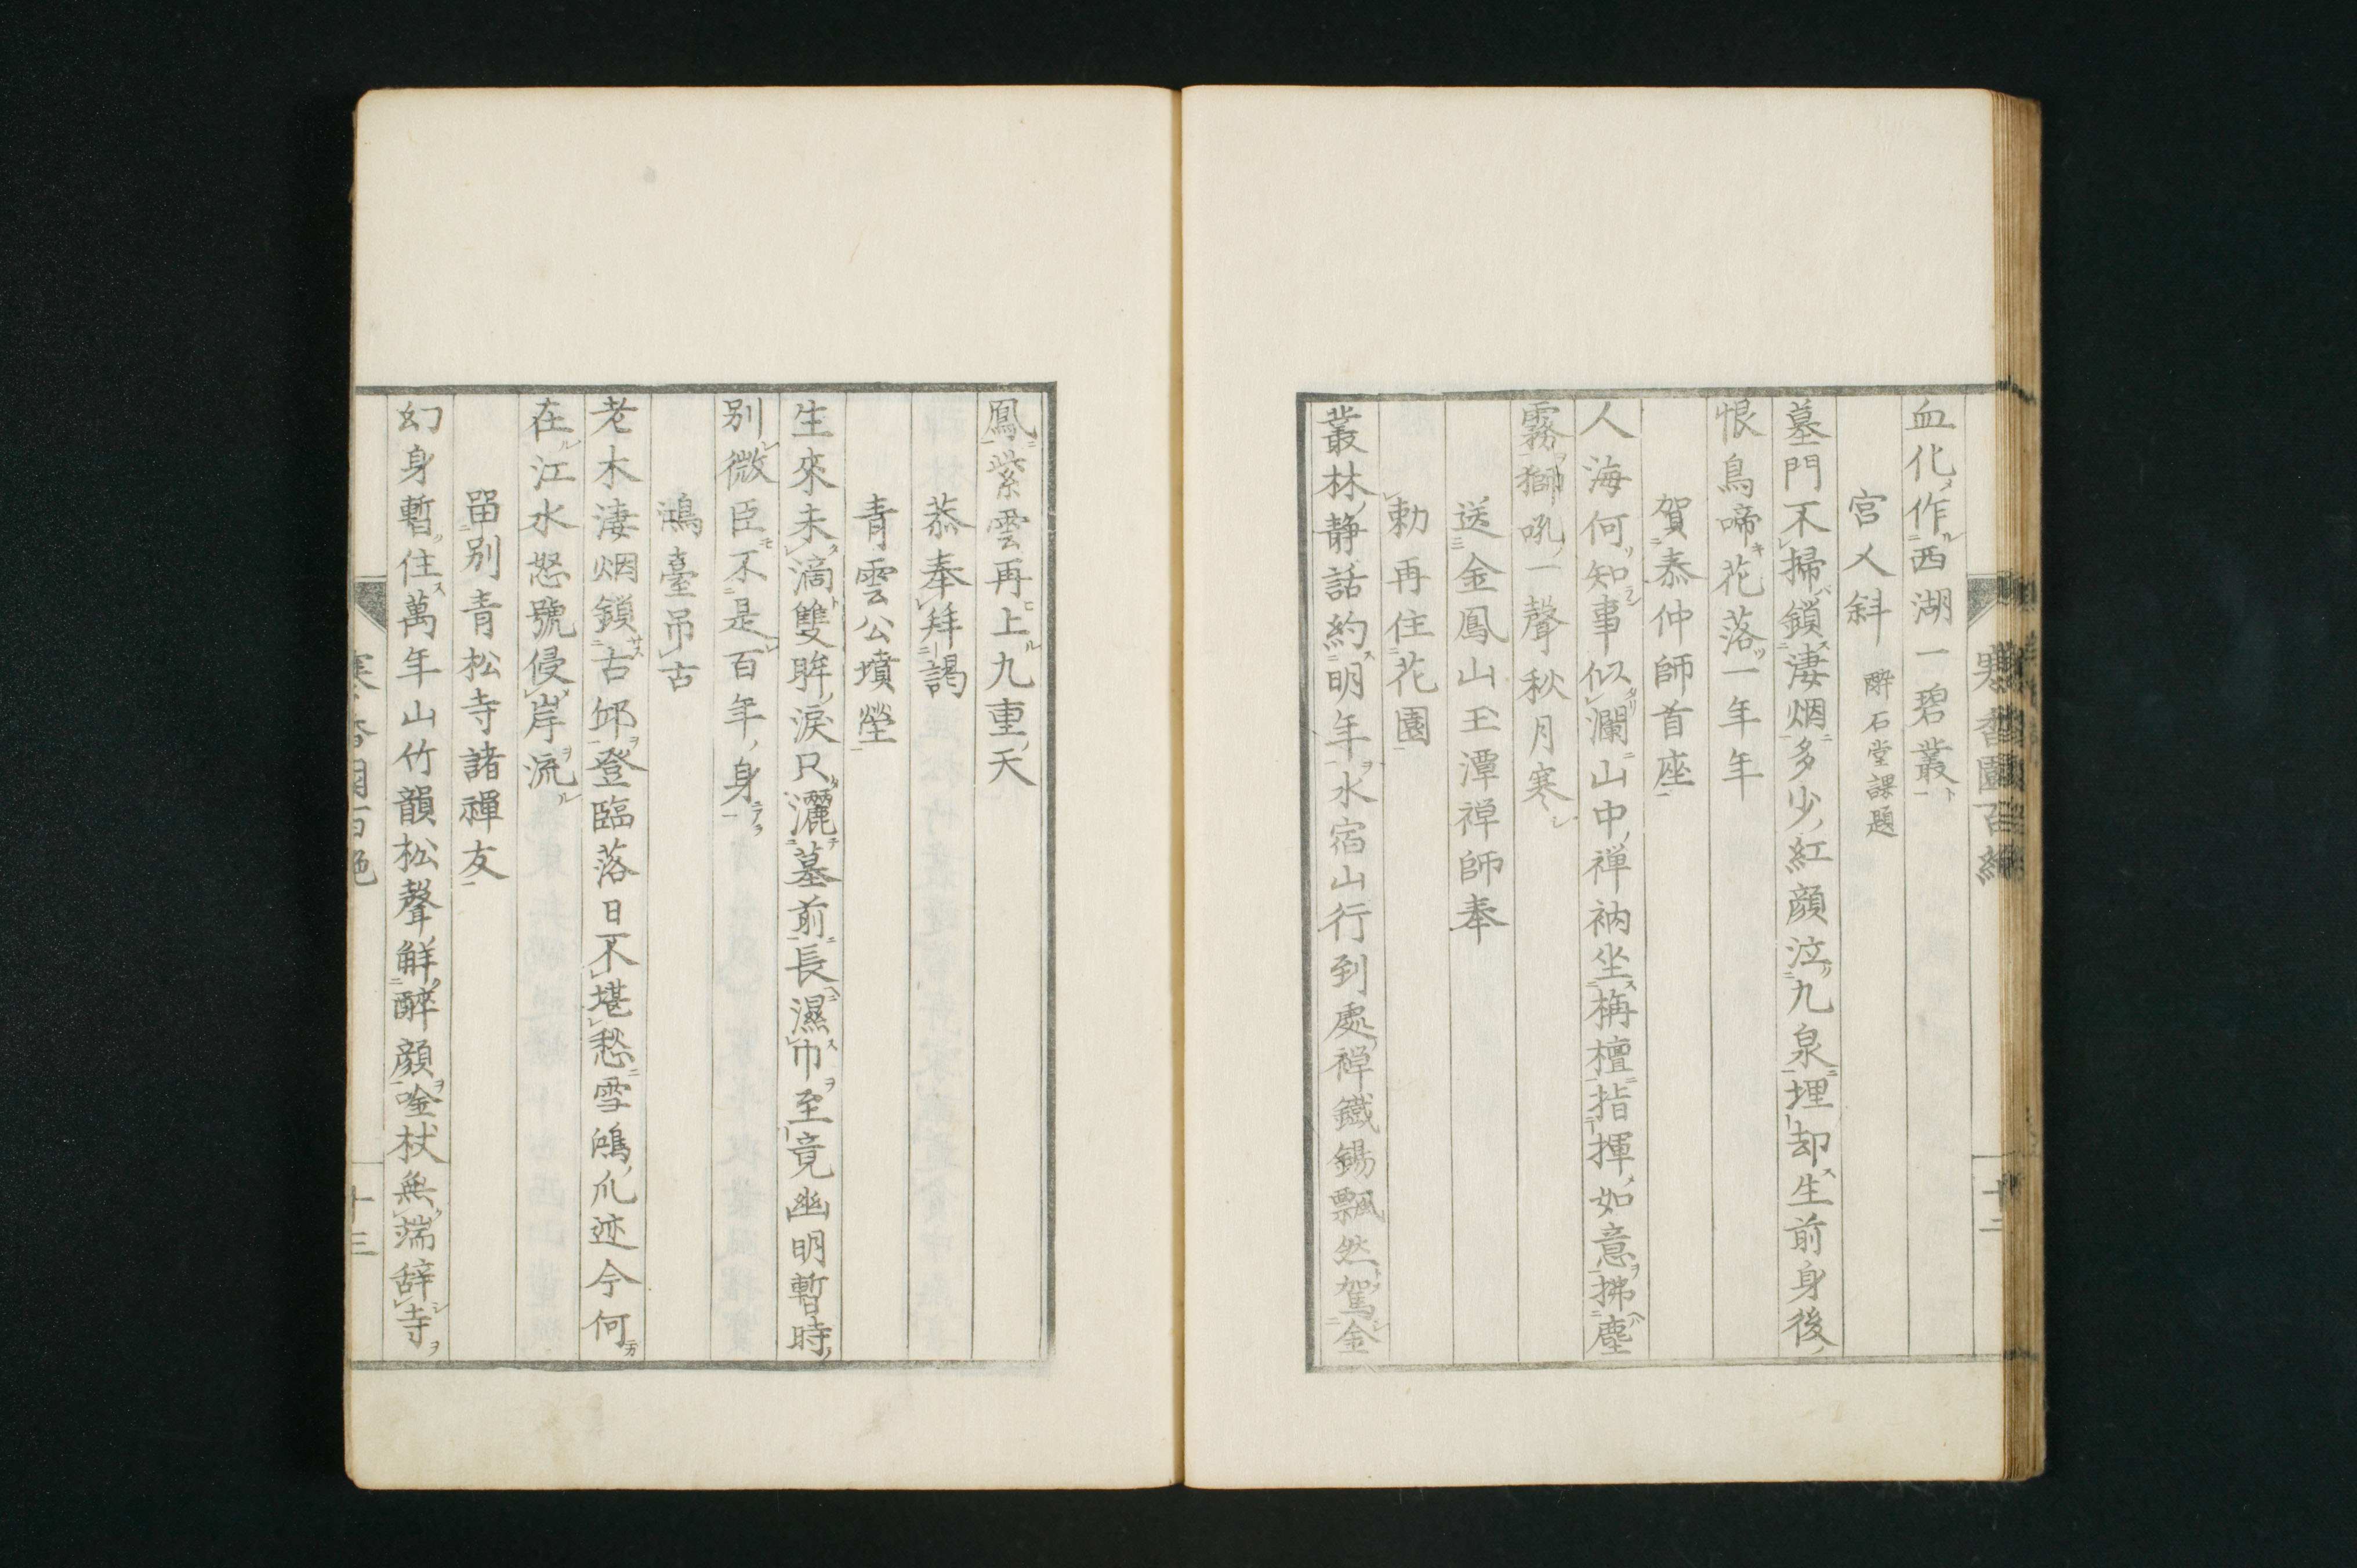 寒香園百絶
十二
血化作西湖一碧叢
宮人斜 酔石堂課題
墓門不掃鎖淒烟多少紅顔泣九泉埋却生前身後
恨鳥啼花落一年年
賀泰仲師首座
人海何知事似瀾山中禅衲坐栴檀指揮如意拂塵
霧獅吼一聲秋月寒
送金鳳山玉潭禅師奉
勅再住花園
叢林静話約明年水宿山行到處禅鐵錫飄然駕金
鳳紫雲再上九重天
恭奉拜謁
青雲公墳塋
生來未滴雙眸淚只灑墓前長濕巾至竟幽明暫時
別微臣不是百年身
鴻臺吊古
老木淒烟鎖古邱登臨落日不堪愁雪鴻爪迹今何
在江水怒號侵岸流
畱別青松寺諸禪友
幻身暫住萬年山竹韻松聲觧醉顔唫杖無端辞寺
寒香園百絶
十三